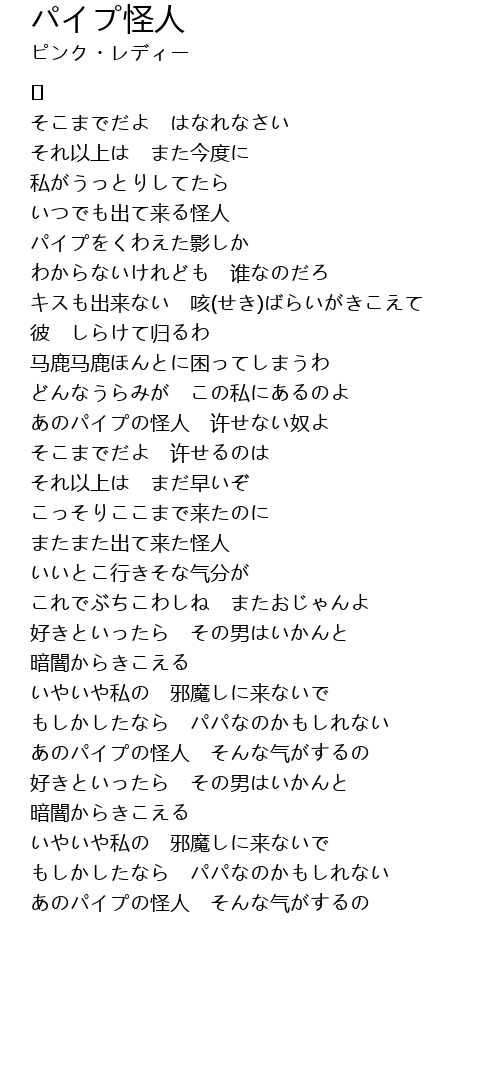 パイプ怪人
ピンク・レディー
そこまでだよ　はなれなさい
それ以上は　また今度に
私がうっとりしてたら
いつでも出て来る怪人
パイプをくわえた影しか
わからないけれども　谁なのだろ
キスも出来ない　咳(せき)ばらいがきこえて
彼　しらけて归るわ
马鹿马鹿ほんとに困ってしまうわ
どんなうらみが　この私にあるのよ
あのパイプの怪人　许せない奴よ
そこまでだよ　许せるのは
それ以上は　まだ早いぞ
こっそりここまで来たのに
またまた出て来た怪人
いいとこ行きそな气分が
これでぶちこわしね　またおじゃんよ
好きといったら　その男はいかんと
暗闇からきこえる
いやいや私の　邪魔しに来ないで
もしかしたなら　パパなのかもしれない
あのパイプの怪人　そんな气がするの
好きといったら　その男はいかんと
暗闇からきこえる
いやいや私の　邪魔しに来ないで
もしかしたなら　パパなのかもしれない
あのパイプの怪人　そんな气がするの